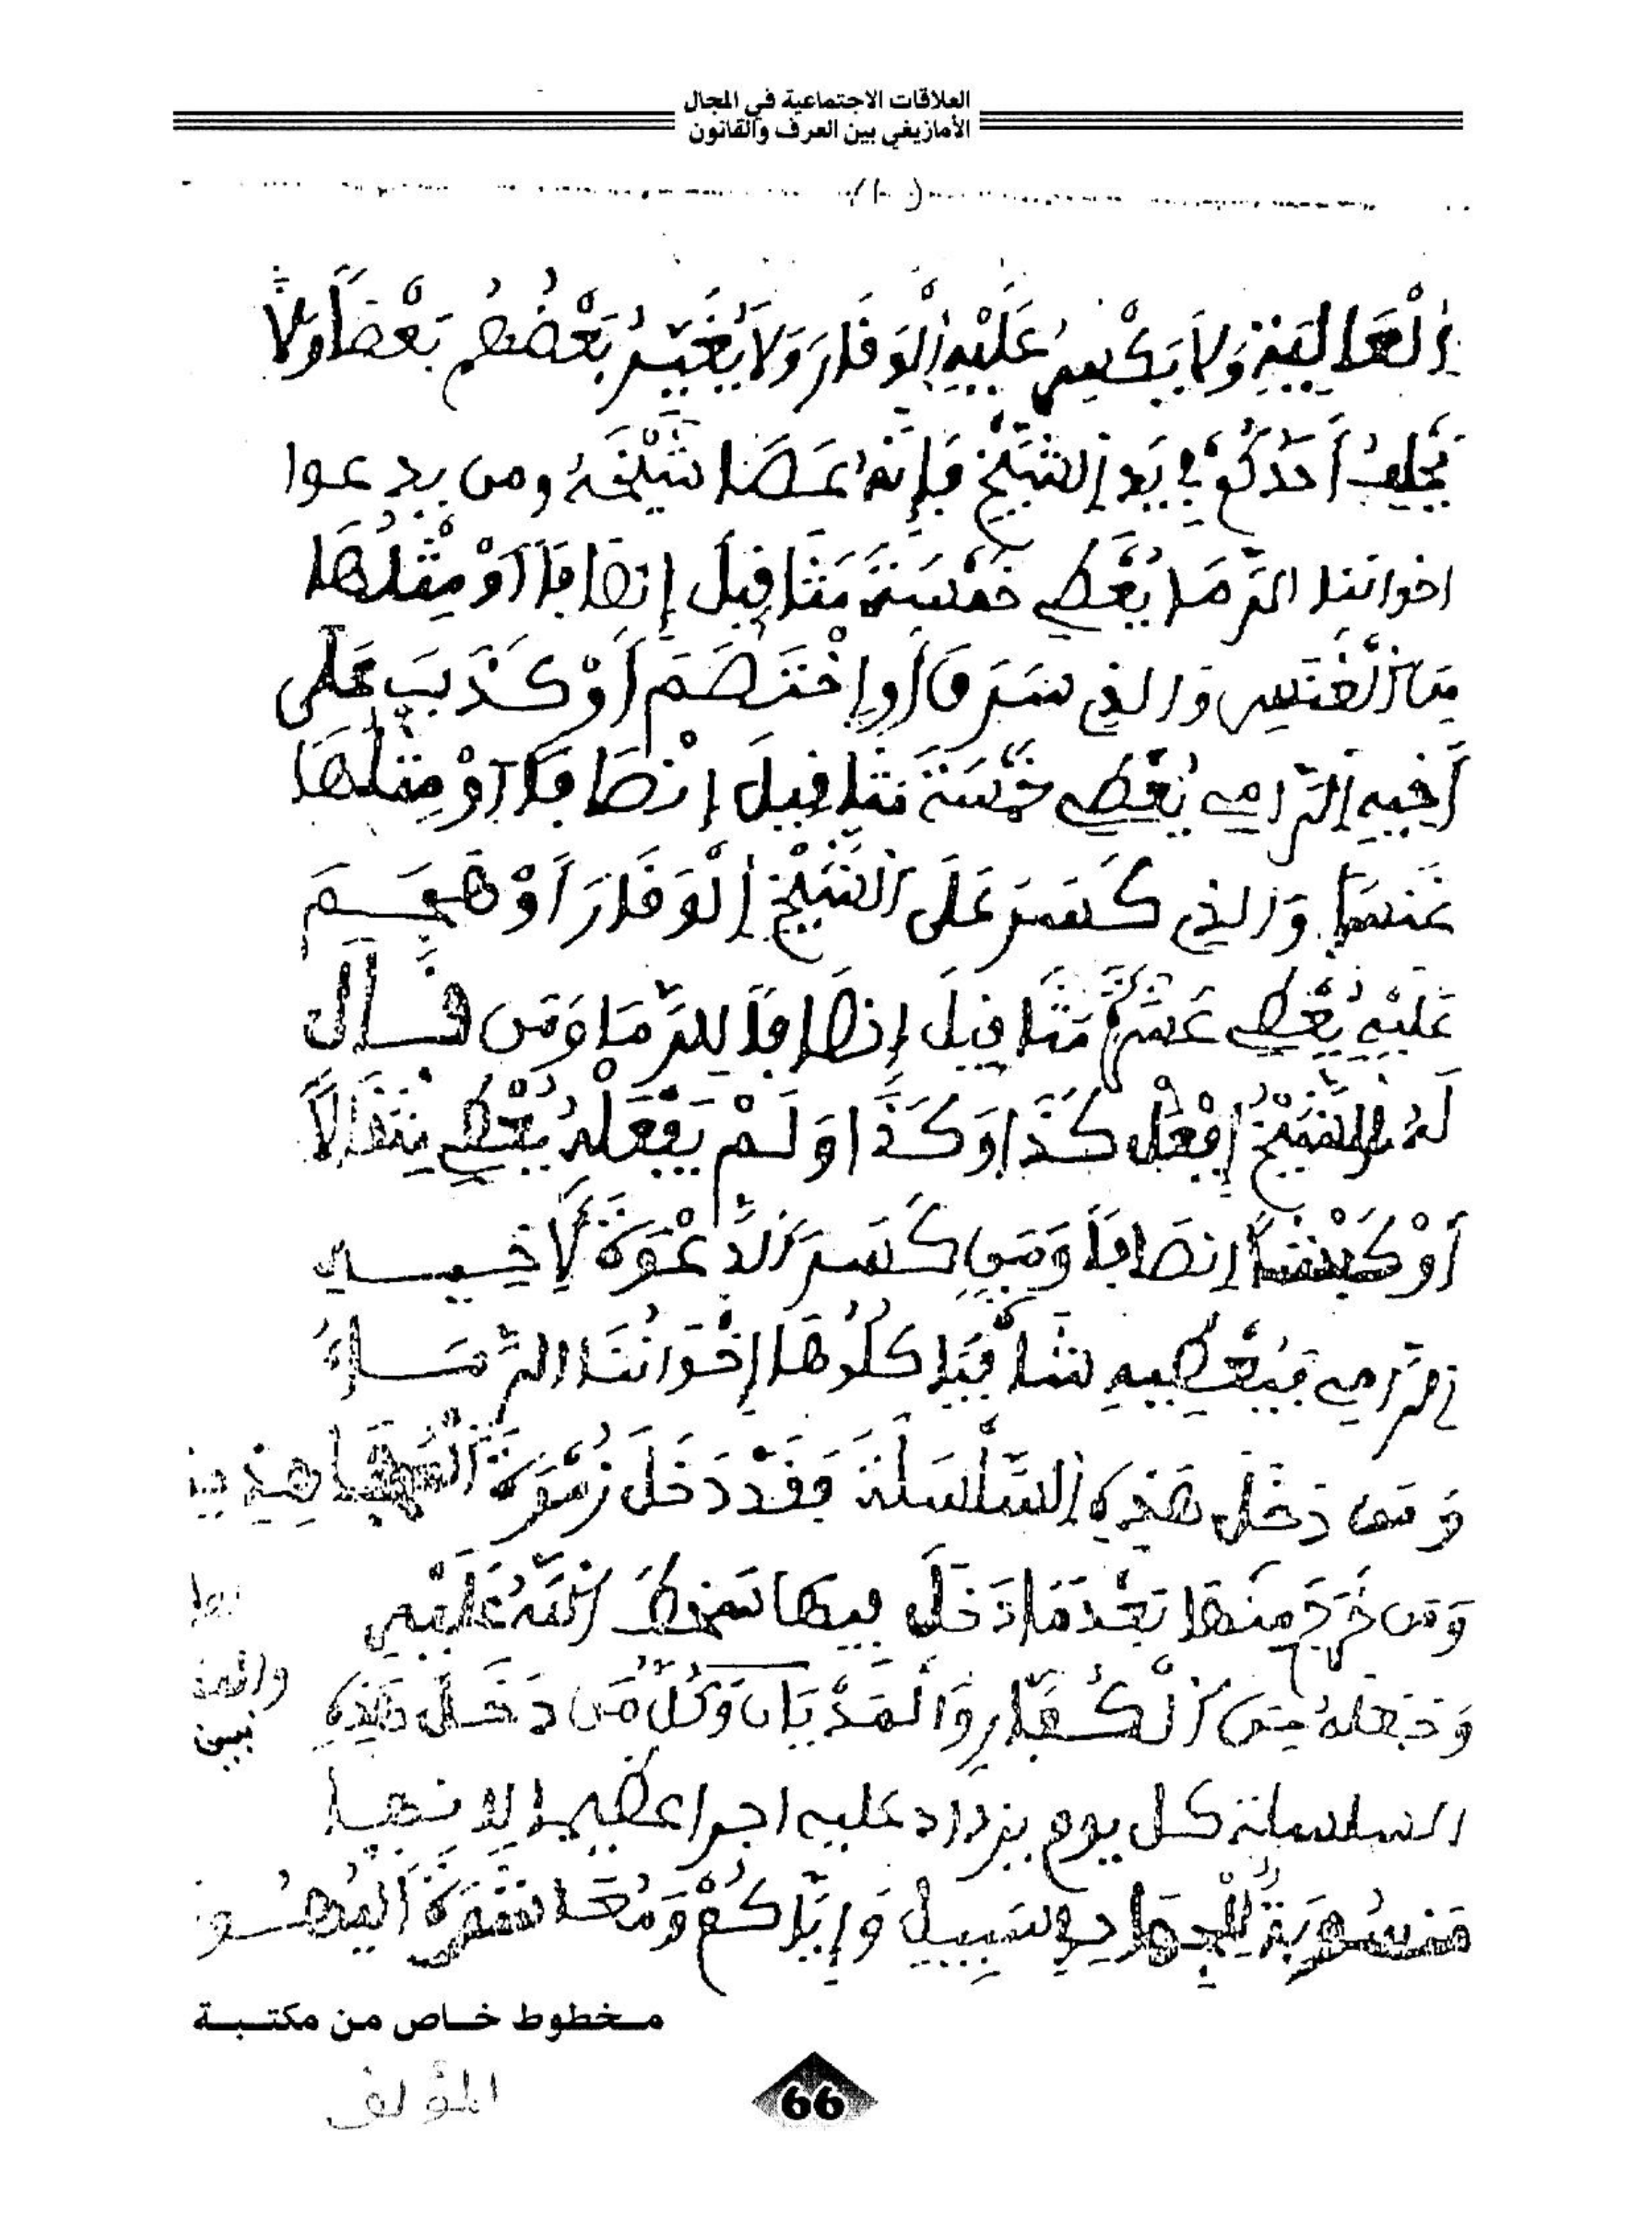 العلاقات الاجتماعية في المجال
الأمازيغي بين العرف والقانون
وَلاَ يَكْسِرُ عَلَيْهِ الْوَقَارَ وَلاَ يُغَيِّرُ بَعْضُهُم بَعْضاً وَلاَ
يَحْلِفُ أَحَدُكُمْ فِي يَدِ الشَّيْخِ فَإِنَّهُ عَصَا شَيْخَهُ ومن يدعوا
اخواننا الرَّمَا يُعْطِي خَمْسَةَ مَثَاقِيلَ إنصافاً أَوْ مِثْلُهَا
مِنَ الْغَنَمِ وَالذي سَرَقَ أَوِ اخْتَصَمَ أَوْ كَذَبَ عَلَى
أَخِيهِ الرَّامِي يُعْطِي خَمْسَةَ مَثَاقِيلَ إِنْصَافاً أَوْ مِثْلُهَا
غَنَماً وَالذي كَسَرَ عَلَى الشَّيْخِ الْوَقَارَ أَوْ هَجَمَ
عَلَيْهِ يُعْطِي عَشَرَةَ مَثَاقِيلَ إِنْصَافاً لِلرُّمَا وَمَن قَالَ
لَهُ الشَّيْخُ إِفْعَلْ كَذَا وَكَذَا وَلَمْ يَفْعَلْهُ يُعْطِي مِثْقَالاً
أَوْ كَبْشاً إنصَافاً وَمَن كَسَرَ الدَّعْوَةَ لأَخِيهِ
الرَّامِي فَيُعْطِيهِ كُلُوهَا إِخْوَانُنَا الرُّمَاةُ
وَمَن دَخَلَ هَذِهِ السِّلْسِلَةَ فَقَدْ دَخَلَ زُمْرَةَ الْمُجَاهِدِينَ
وَمَن خَرَجَ مِنْهَا بَعْدَمَا دَخَلَ فِيهَا سَخِطَ اللَّهُ عَلَيْهِ
وَجَعَلَهُ مِنَ الْكُفَّارِ وَكُلُّ مَن دَخَلَ هَذِهِ
السلسلة كل يوم يزداد عليه اجرا عظيما لانها
مَنسُوبَةٌ لِلْجِهَادِ فِي سَبِيلِ وَإِيَّاكُمْ وَمُعَاشَرَةَ
مـخطوط خـاص من مكتـبـة
المؤلف
66